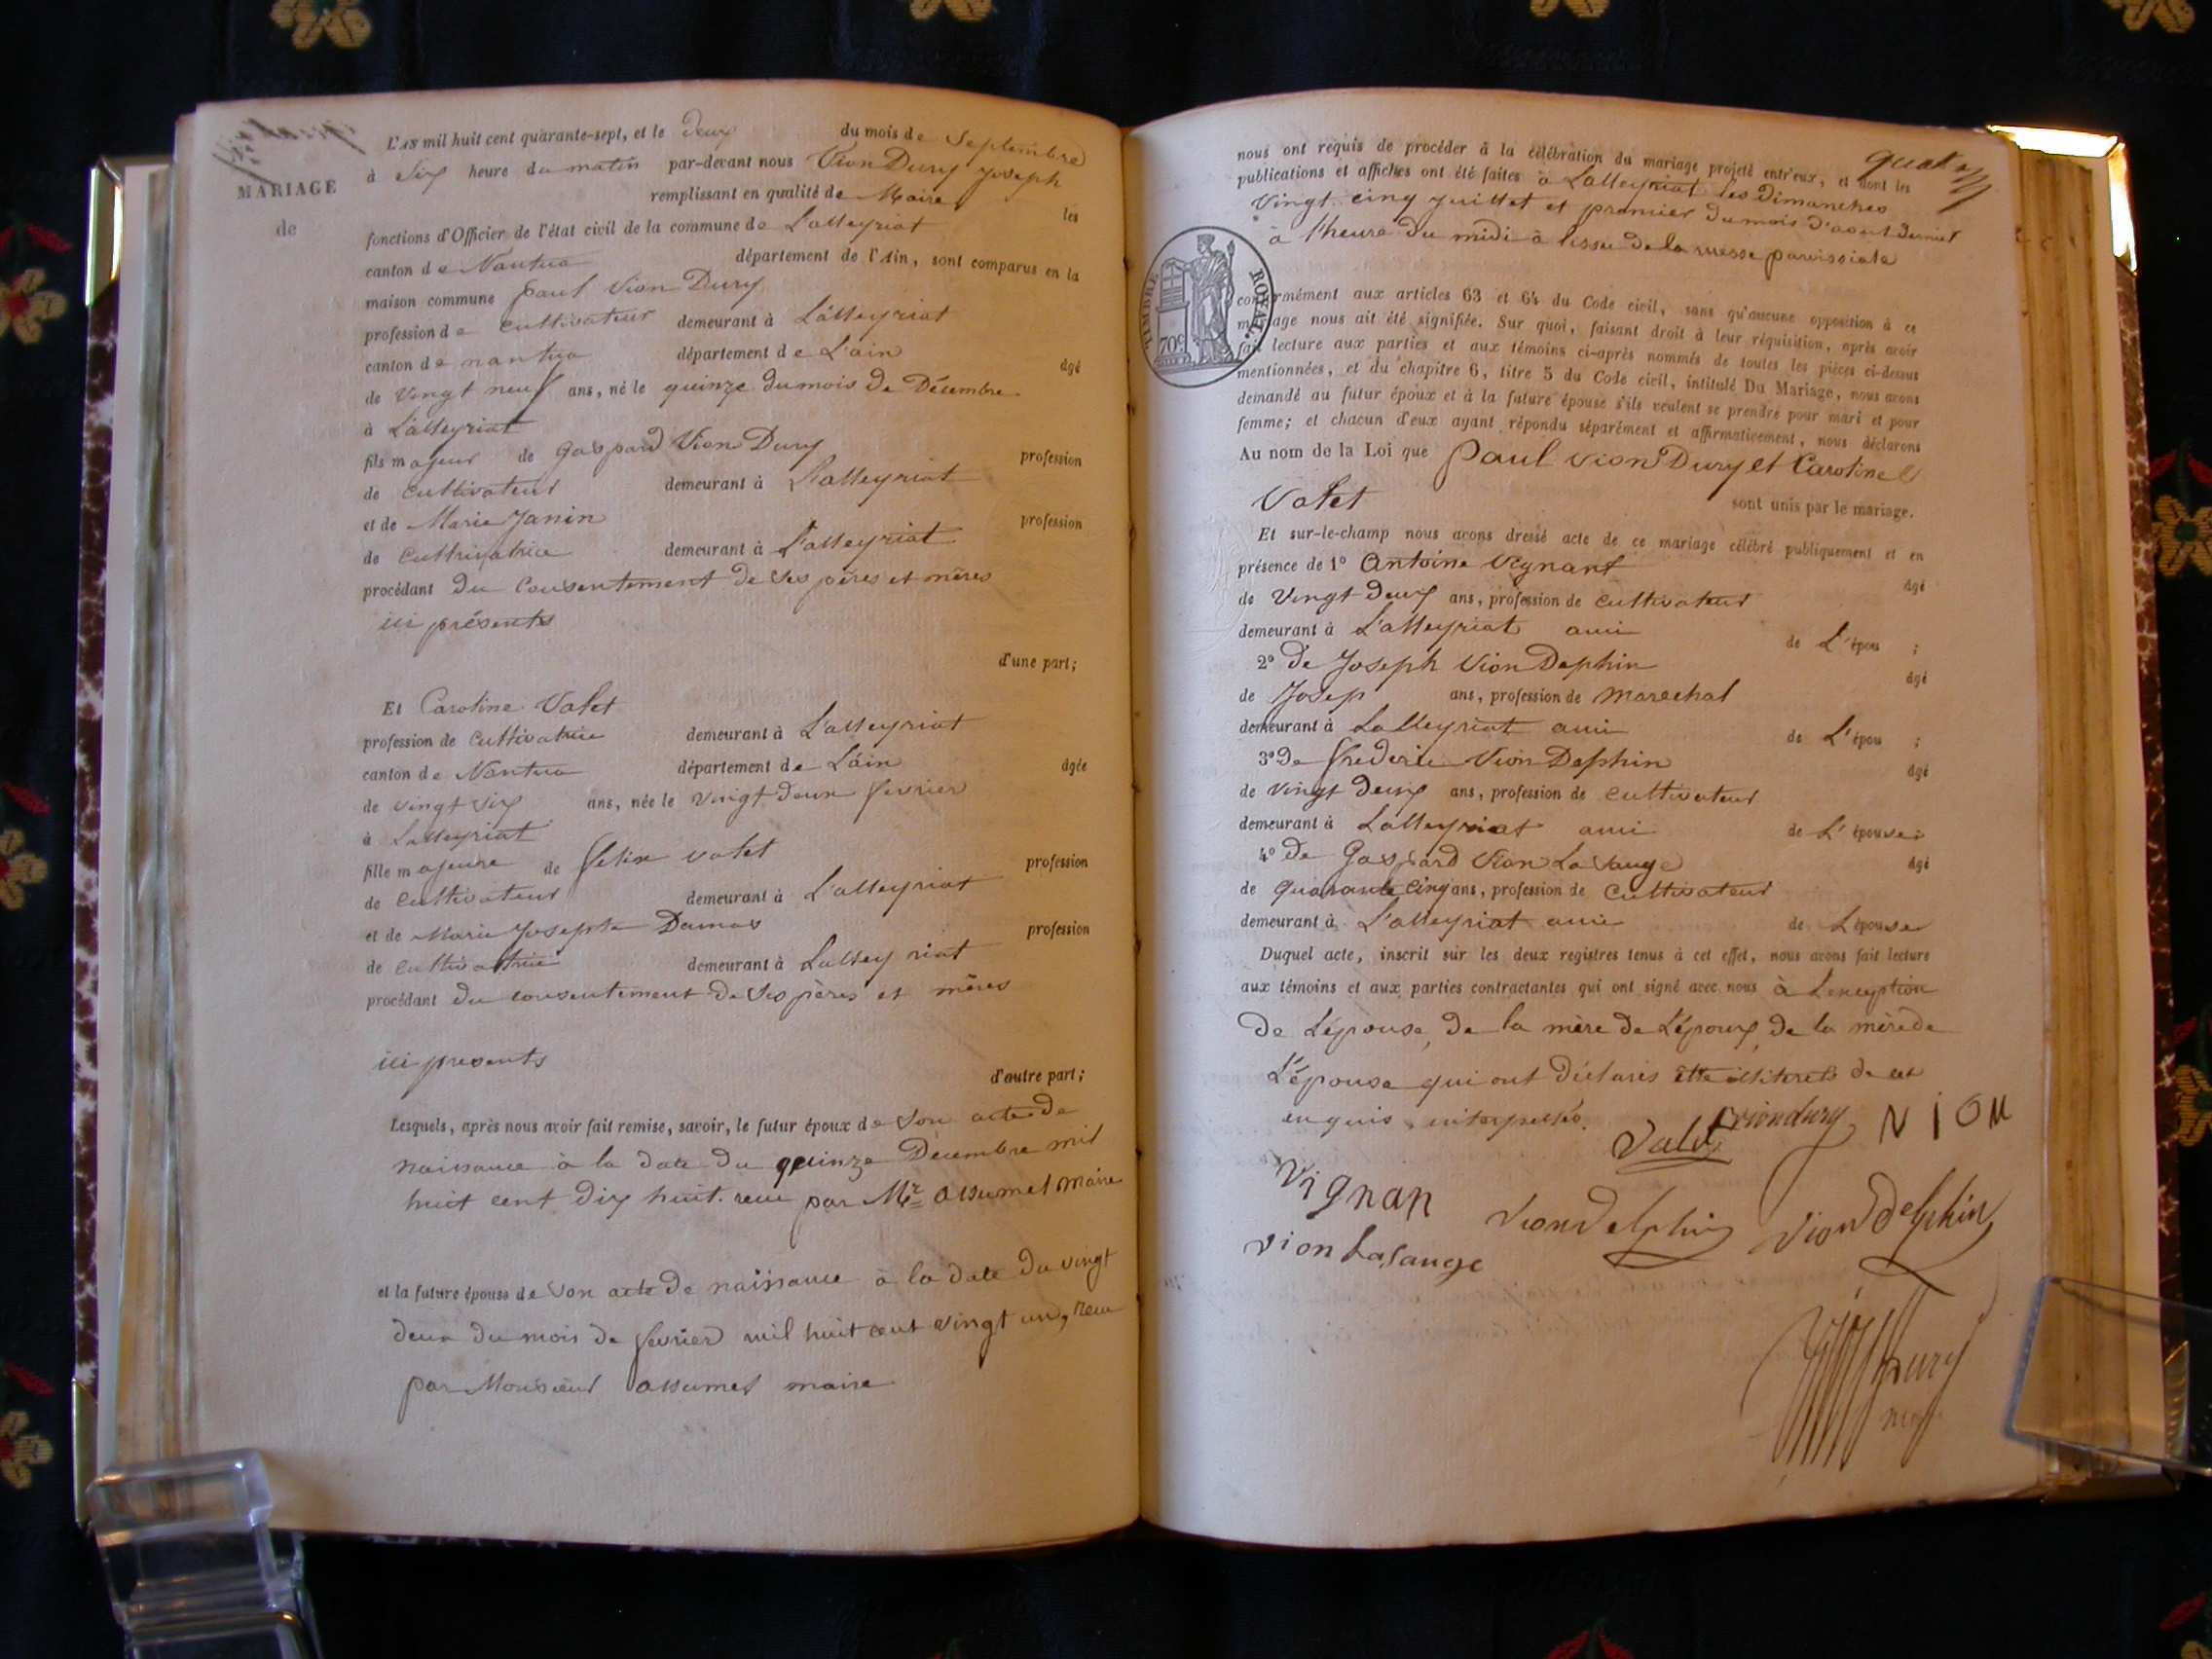 MARIAGE
de
L'an mil huit cent quarante-sept, et le deux du mois de Septembre
à six heure du matin par-devant nous Vion Dury Joseph
remplissant en qualité de Maire les
fonctions d'Officier de l'état civil de la commune de Lalleyriat
canton de Nantua département de l'Ain, sont comparus en la
maison commune paul Vion Dury
profession de cultivateur demeurant à Lalleyriat
canton de nantua département de L'ain âgé
de Vingt neuf ans, né le quinze du mois de Décembre
à Lalleyriat
fils majeur de gaspard Vion Dury profession
de cultivateur demeurant à Lalleyriat
et de Marie Janin profession
de cultivatrice demeurant à L'alleyriat
procédant du Consentement de ses pères et mères
ici présents
d'une part;
Et Caroline Valet
profession de cultivatrice demeurant à L'alleyriat
canton de Nantua département de L'ain âgée
de vingt six ans, née le vingt deux fevrier
à Lalleyriat
fille majeure de felix valet profession
de cultivateur demeurant à L'alleyriat
et de Marie Josephte Damas profession
de cultivatrice demeurant à Lalleyriat
procédant du consentement de ses pères et mères
ici presents
d'autre part;
Lesquels, après nous avoir fait remise, savoir, le futur époux de son acte de
naissance à la date du quinze Décembre mil
huit cent dix huit. recu par Mr assumel maire
et la future épouse de son acte de naissance à la date du vingt
deux du mois de fevrier mil huit cent vingt un, recu
par Monsieur assumel maire
nous ont requis de procéder à la célébration du mariage projeté entr'eux, et dont les
publications et affiches ont été faites à Lalleyriat les Dimanches
Vingt cinq juillet et premier du mois d'aout dernier
à l'heure du midi à lissue de la messe paroissiale
TIMBRE ROYAL.
70c
conformément aux articles 63 et 64 du Code civil, sans qu'aucune opposition à ce
mariage nous ait été signifiée. Sur quoi, faisant droit à leur réquisition, après avoir
fait lecture aux parties et aux témoins ci-après nommés de toutes les pièces ci-dessus
mentionnées, et du chapitre 6, titre 5 du Code civil, intitulé Du Mariage, nous avons
demandé au futur époux et à la future épouse s'ils veulent se prendre pour mari et pour
femme; et chacun d'eux ayant répondu séparément et affirmativement, nous déclarons
Au nom de la Loi que Paul vion Dury et Caroline
Valet sont unis par le mariage.
Et sur-le-champ nous avons dressé acte de ce mariage célébré publiquement et en
présence de 1º Antoine Vignant âgé
de Vingt deux ans, profession de cultivateur
demeurant à L'alleyriat ami de L'épou ;
2º de Joseph Vion Dephin âgé
de Josep ans, profession de marechal
demeurant à Lalleyriat ami de L'épou ;
3º de frederic Vion Dephin âgé
de vingt deux ans, profession de cultivateur
demeurant à Lalleyriat ami de L'épouse;
4º de Gaspard Vion La sauge âgé
de quarante cinq ans, profession de cultivateur
demeurant à L'alleyriat ami de Lépouse
Duquel acte, inscrit sur les deux registres tenus à cet effet, nous avons fait lecture
aux témoins et aux parties contractantes qui ont signé avec nous à Lexception
de Lépouse, de la mère de Lépoux, de la mère de
L'épouse qui ont déclarés être illiterets de ce
enquis, interpellés.
Valet viondury VION
Vignan viondelphin viondelphin
vion lasauge
Dury